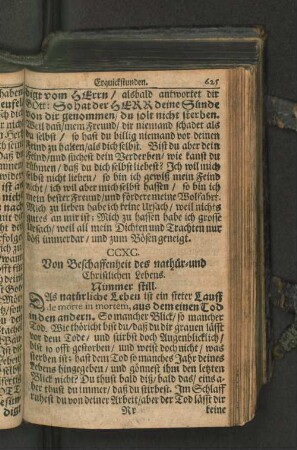 Erquickstunden. 625
digt vom HErrn / alsbald antwortet dir
GOtt: So hat der HERR deine Sünde
von dir genommen / du solt nicht sterben.
Weil dañ / mein Freund / dir niemand schader als
du selbst / so hast du billig niemand vor deinen
Feind zu halten / als dich selbst. Bist du aber dein
Feind / und suchest dein Verderben / wie kanst du
rühmen / daß du dich selbst liebest? Ich will mich
selbst nicht lieben / so bin ich gewiß mein Feind
nicht / ich will aber mich selbst hassen / so bin ich
mein bester Freund / und fördere meine Wolfahrt.
Mich zu lieben habe ich keine Ursach / weil nichts
gutes an mir ist: Mich zu hassen habe ich grosse
Ursach / weil all mein Dichten und Trachten nur
böß immerdar / und zum Bösen geneigt.
CCXC.
Von Beschaffenheit des nathür- und
Christlichen Lebens.
Nimmer still.
DAs natürliche Leben ist ein steter Lauff
de morte in mortem, aus dem einen Tod
in den andern. So mancher Blick / so mancher
Tod. Wie thöricht bist du / daß du dir grauen lässt
vor dem Tode / und stirbst doch Augenblicklich /
bist so offt gestorben / und weist doch nicht / was
sterben ist: hast dem Tod so manches Jahr deines
Lebens hingegeben / und gönnest ihm den letzten
Blick nicht? Du thust bald diß / bald das / eins a-
ber thust du immer / daß du stirbest. Im Schlaff
ruhest du von deiner Arbeit / aber der Tod läst dir
Rr keine